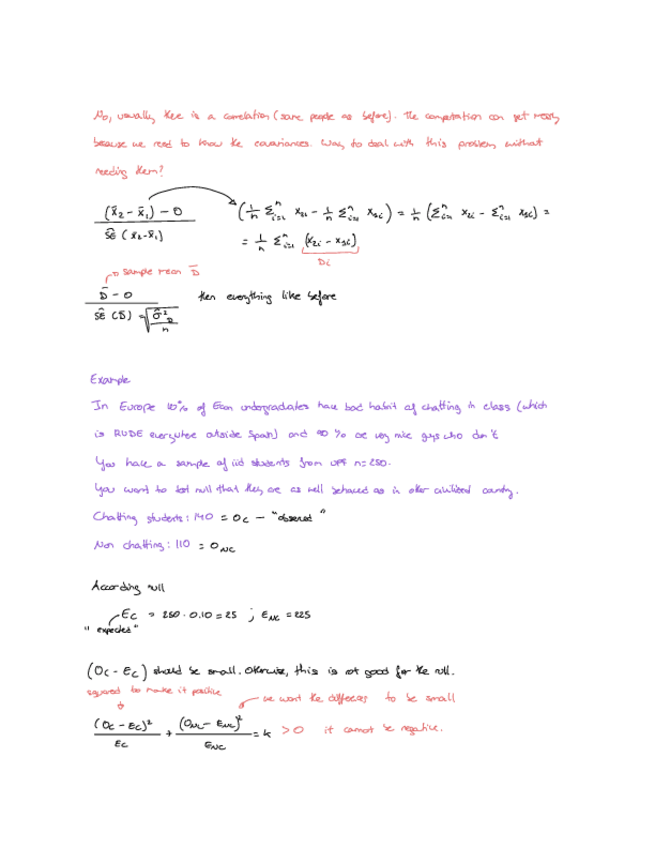 No, usually there is a correlation (same people as before). The computation can get messy
because we need to know the covariances. Way to deal with this problem without
needing them?
(x̄₂ - x̄₁) - 0 / ŜE (x̄₂-x̄₁)   (1/n Σⁿᵢ₌₁ x₂ᵢ - 1/n Σⁿᵢ₌₁ x₁ᵢ) = 1/n (Σⁿᵢ₌₁ x₂ᵢ - Σⁿᵢ₌₁ x₁ᵢ) =
= 1/n Σⁿᵢ₌₁ (x₂ᵢ - x₁ᵢ)
Di
→ sample mean D̄
D̄ - 0 / ŜE (D̄) = √(σ̂²_D / n)   then everything like before
Example
In Europe 10% of Econ undergraduates have bad habit of chatting in class (which
is RUDE everywhere outside Spain) and 90 % are very nice guys who don't
You have a sample of iid students from UPF n=250.
You want to test null that they are as well behaved as in other civilized country.
Chatting students: 140 = O_C - "observed"
Non chatting: 110 = O_NC
According null
E_C = 250 · 0.10 = 25 ; E_NC = 225
"expected"
(O_C - E_C) should be small. Otherwise, this is not good for the null.
squared to make it positive   we want the differences to be small
(O_C - E_C)² / E_C + (O_NC - E_NC)² / E_NC = k > 0 it cannot be negative.